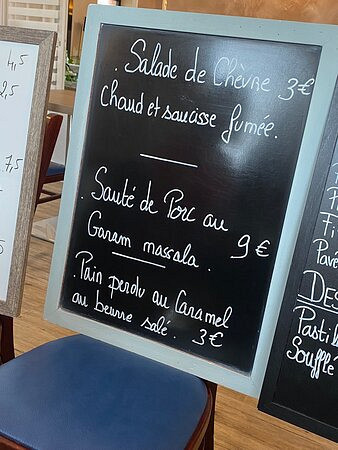 4,5
2,5
7,5
. Salade de Chèvre 3€
chaud et saucisse fumée.
. Sauté de Porc au
Garam massala . 9€
. Pain perdu au Caramel
au beurre salé. 3€
Fi
Pavé
DES
Pastil
Soufflé